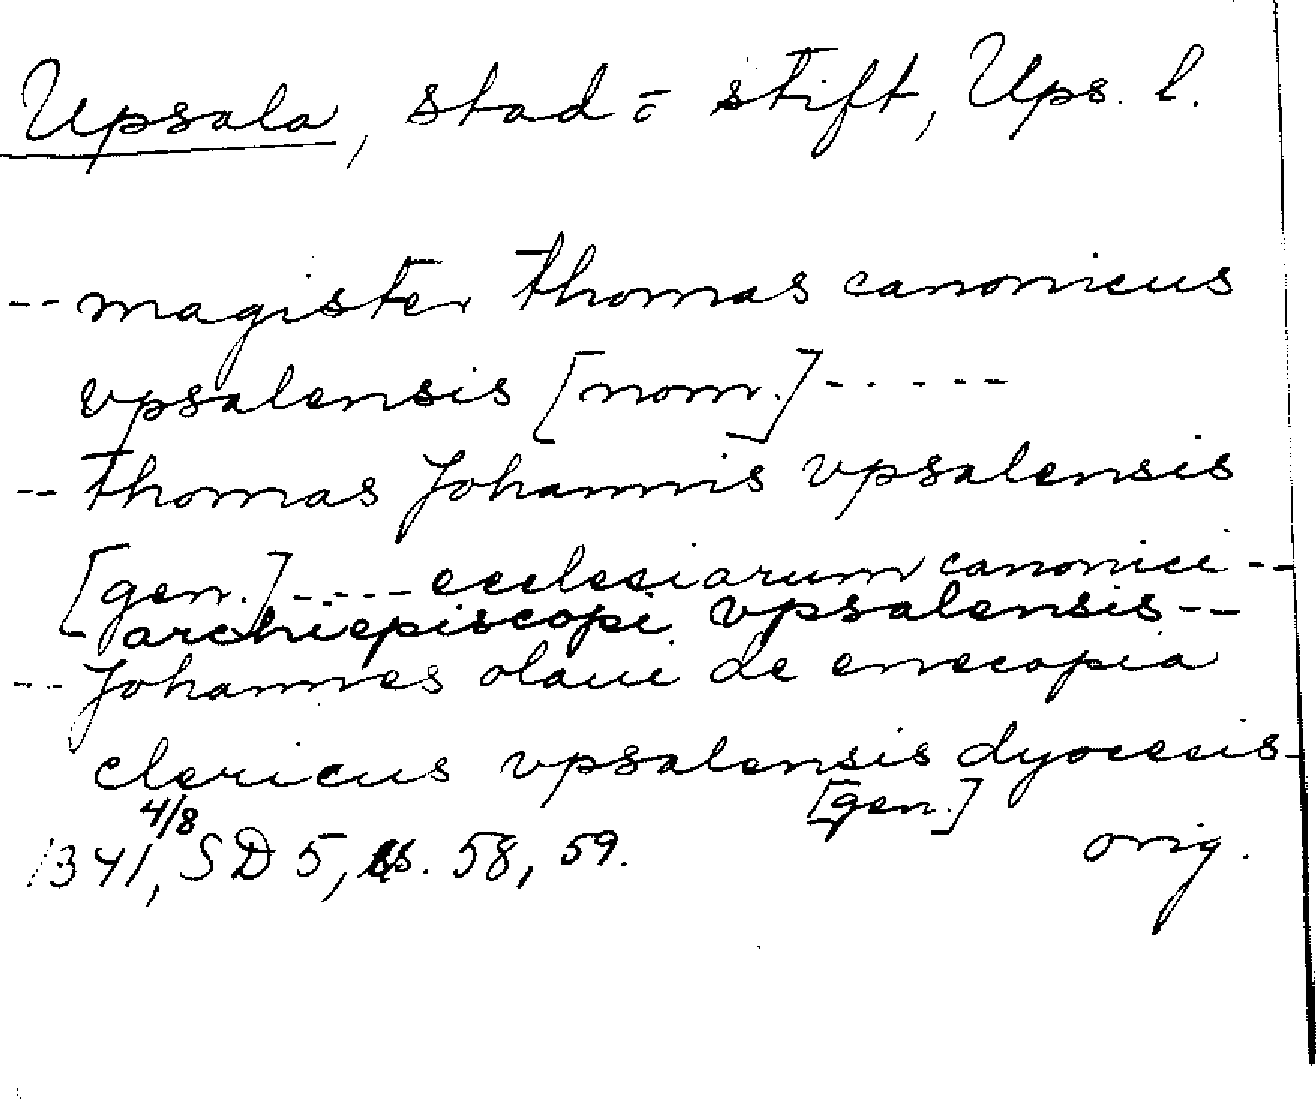 Upsala, stad o stift, Ups. l.
-- magister thomas canonicus
vpsalensis [nom.] - - - - -
-- thomas Johannis vpsalensis
[gen.] - - - - ecclesiarum canonici --
- archiepiscopi vpsalensis --
-- Johannes olaui de enecopia
clericus vpsalensis dyocesis -
[gen.]
4/8
1341, SD 5, s. 58, 59. orig.